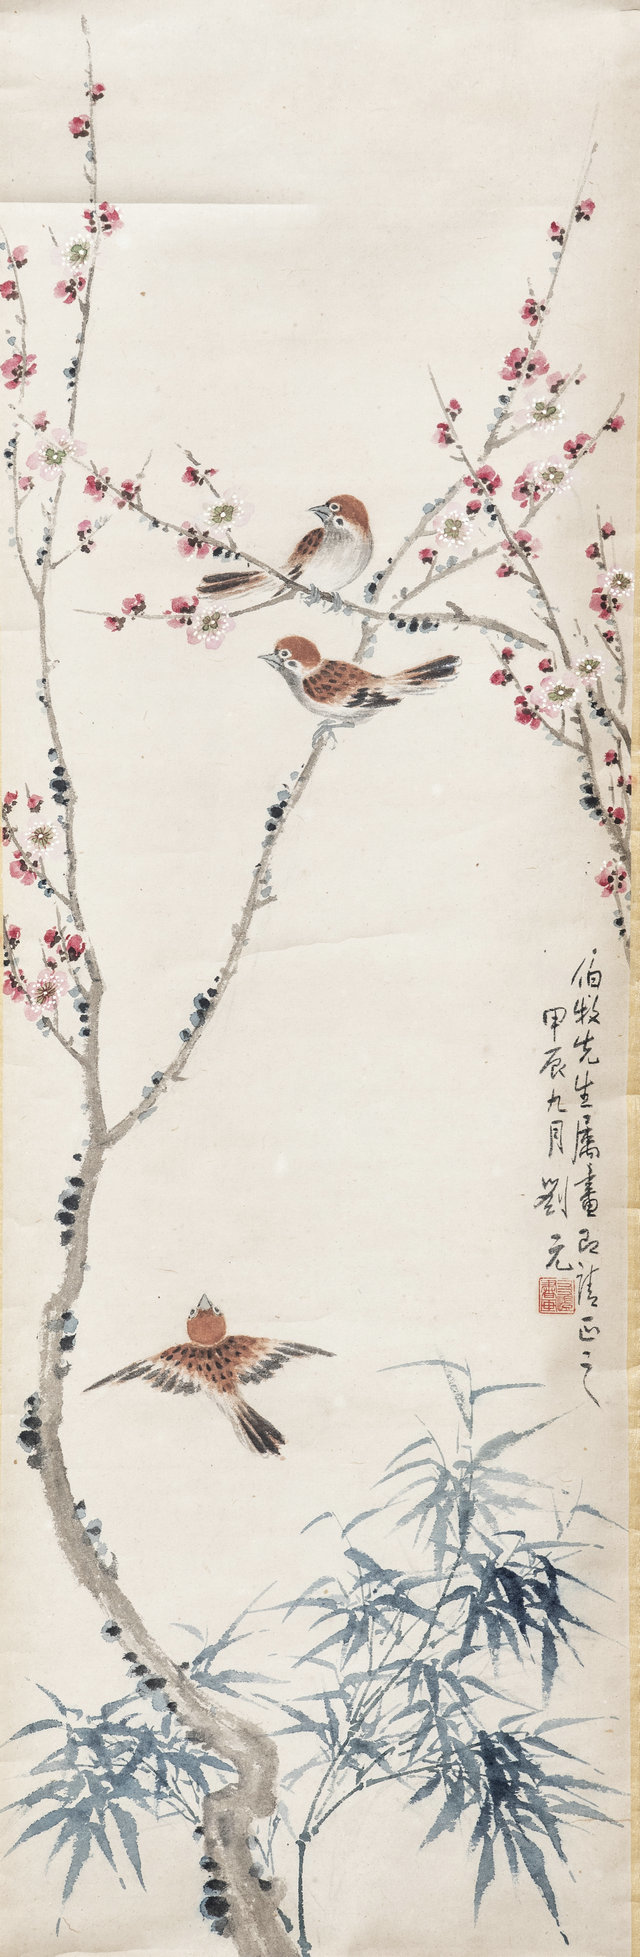 伯牧先生属畫即請正之
甲辰九月劉元